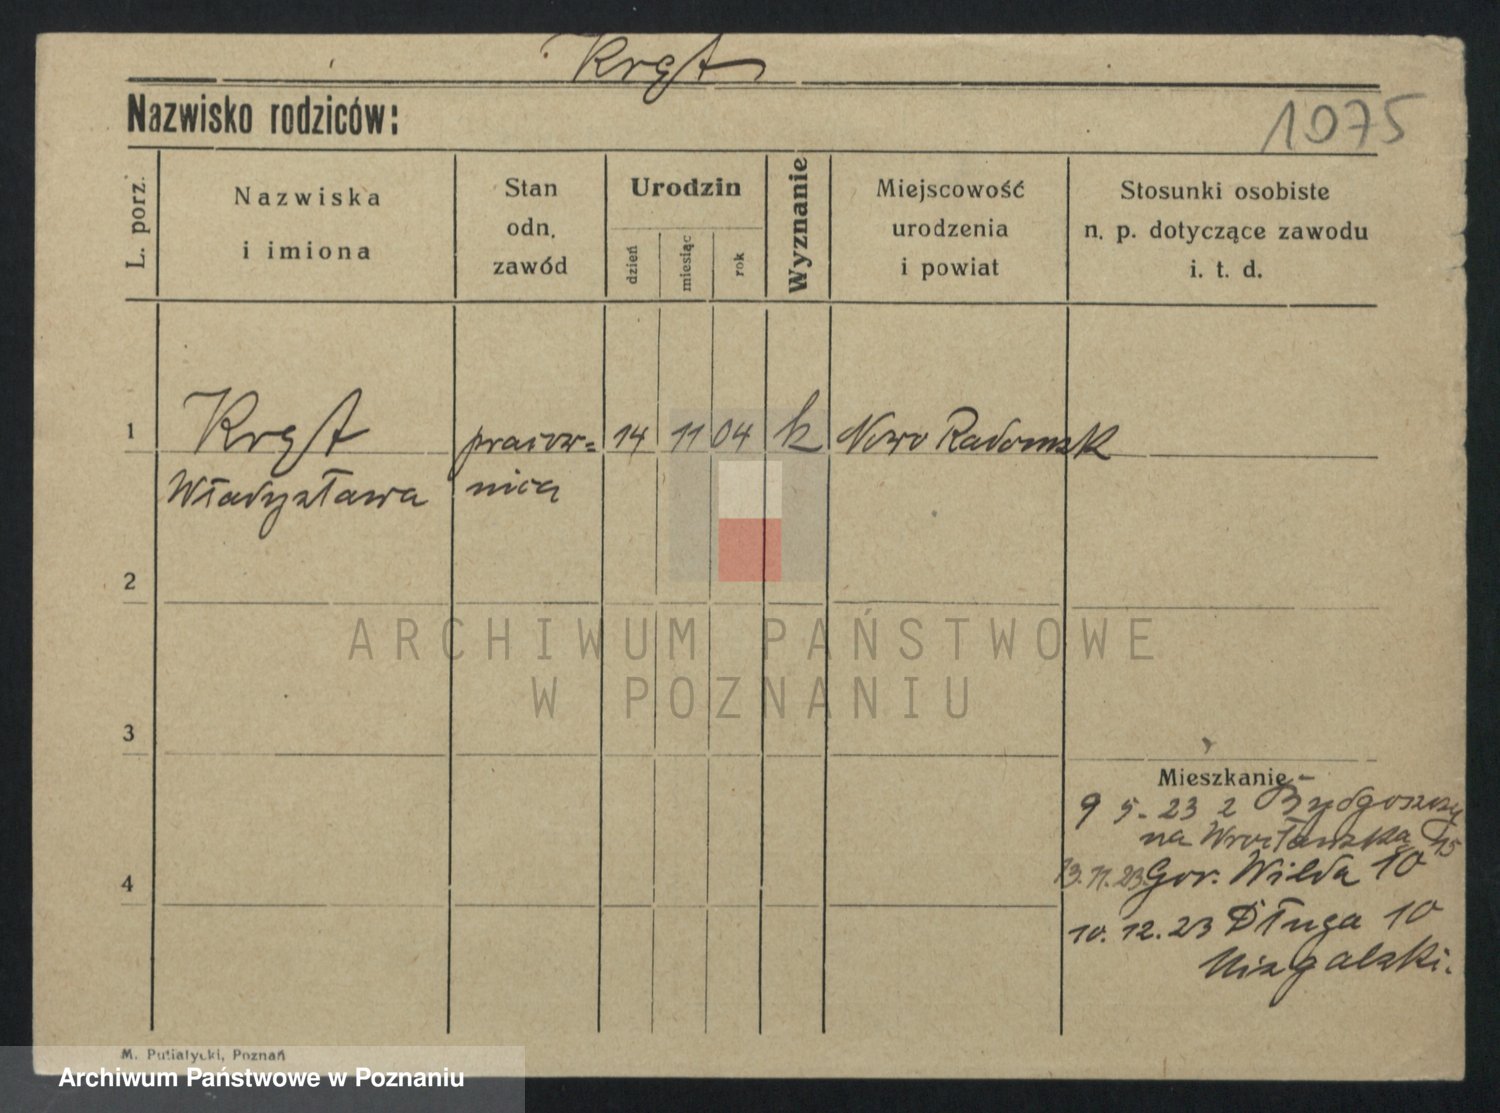 Kręt
Nazwisko rodziców:
1075
L. porz.
Nazwiska
i imiona
Stan
odn.
zawód
Urodzin
dzień
miesiąc
rok
Wyznanie
Miejscowość
urodzenia
i powiat
Stosunki osobiste
n. p. dotyczące zawodu
i. t. d.
1
Kręt
Władysława
pracow=
nica
14
11
04
k
Nowo Radomsk
2
ARCHIWUM PAŃSTWOWE
W POZNANIU
3
Mieszkanie
9 5-23 z Bydgoszczy
na Wrocławska 15
13.11.23 Gor. Wilda 10
10.12.23 Długa 10
4
M. Putiatycki, Poznań
Archiwum Państwowe w Poznaniu